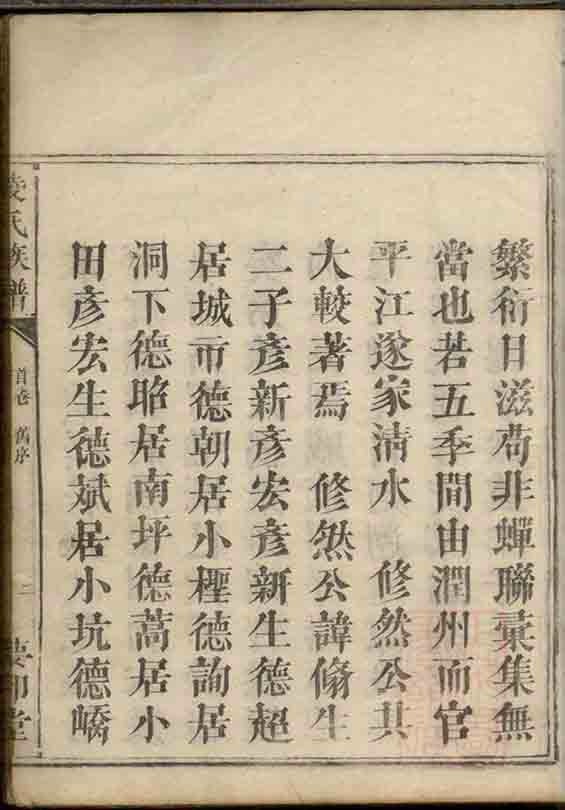 繁衍日滋苟非蟬聯彚集無
當也若五季間由潤州而官
平江遂家清水　修然公其
大較著焉　修然公諱脩生
二子彥新彥宏彥新生德超
居城市德朝居小櫪德詢居
洞下德昭居南坪德蒿居小
田彥宏生德斌居小坑德嶠
淩氏族譜
首卷　舊序
二